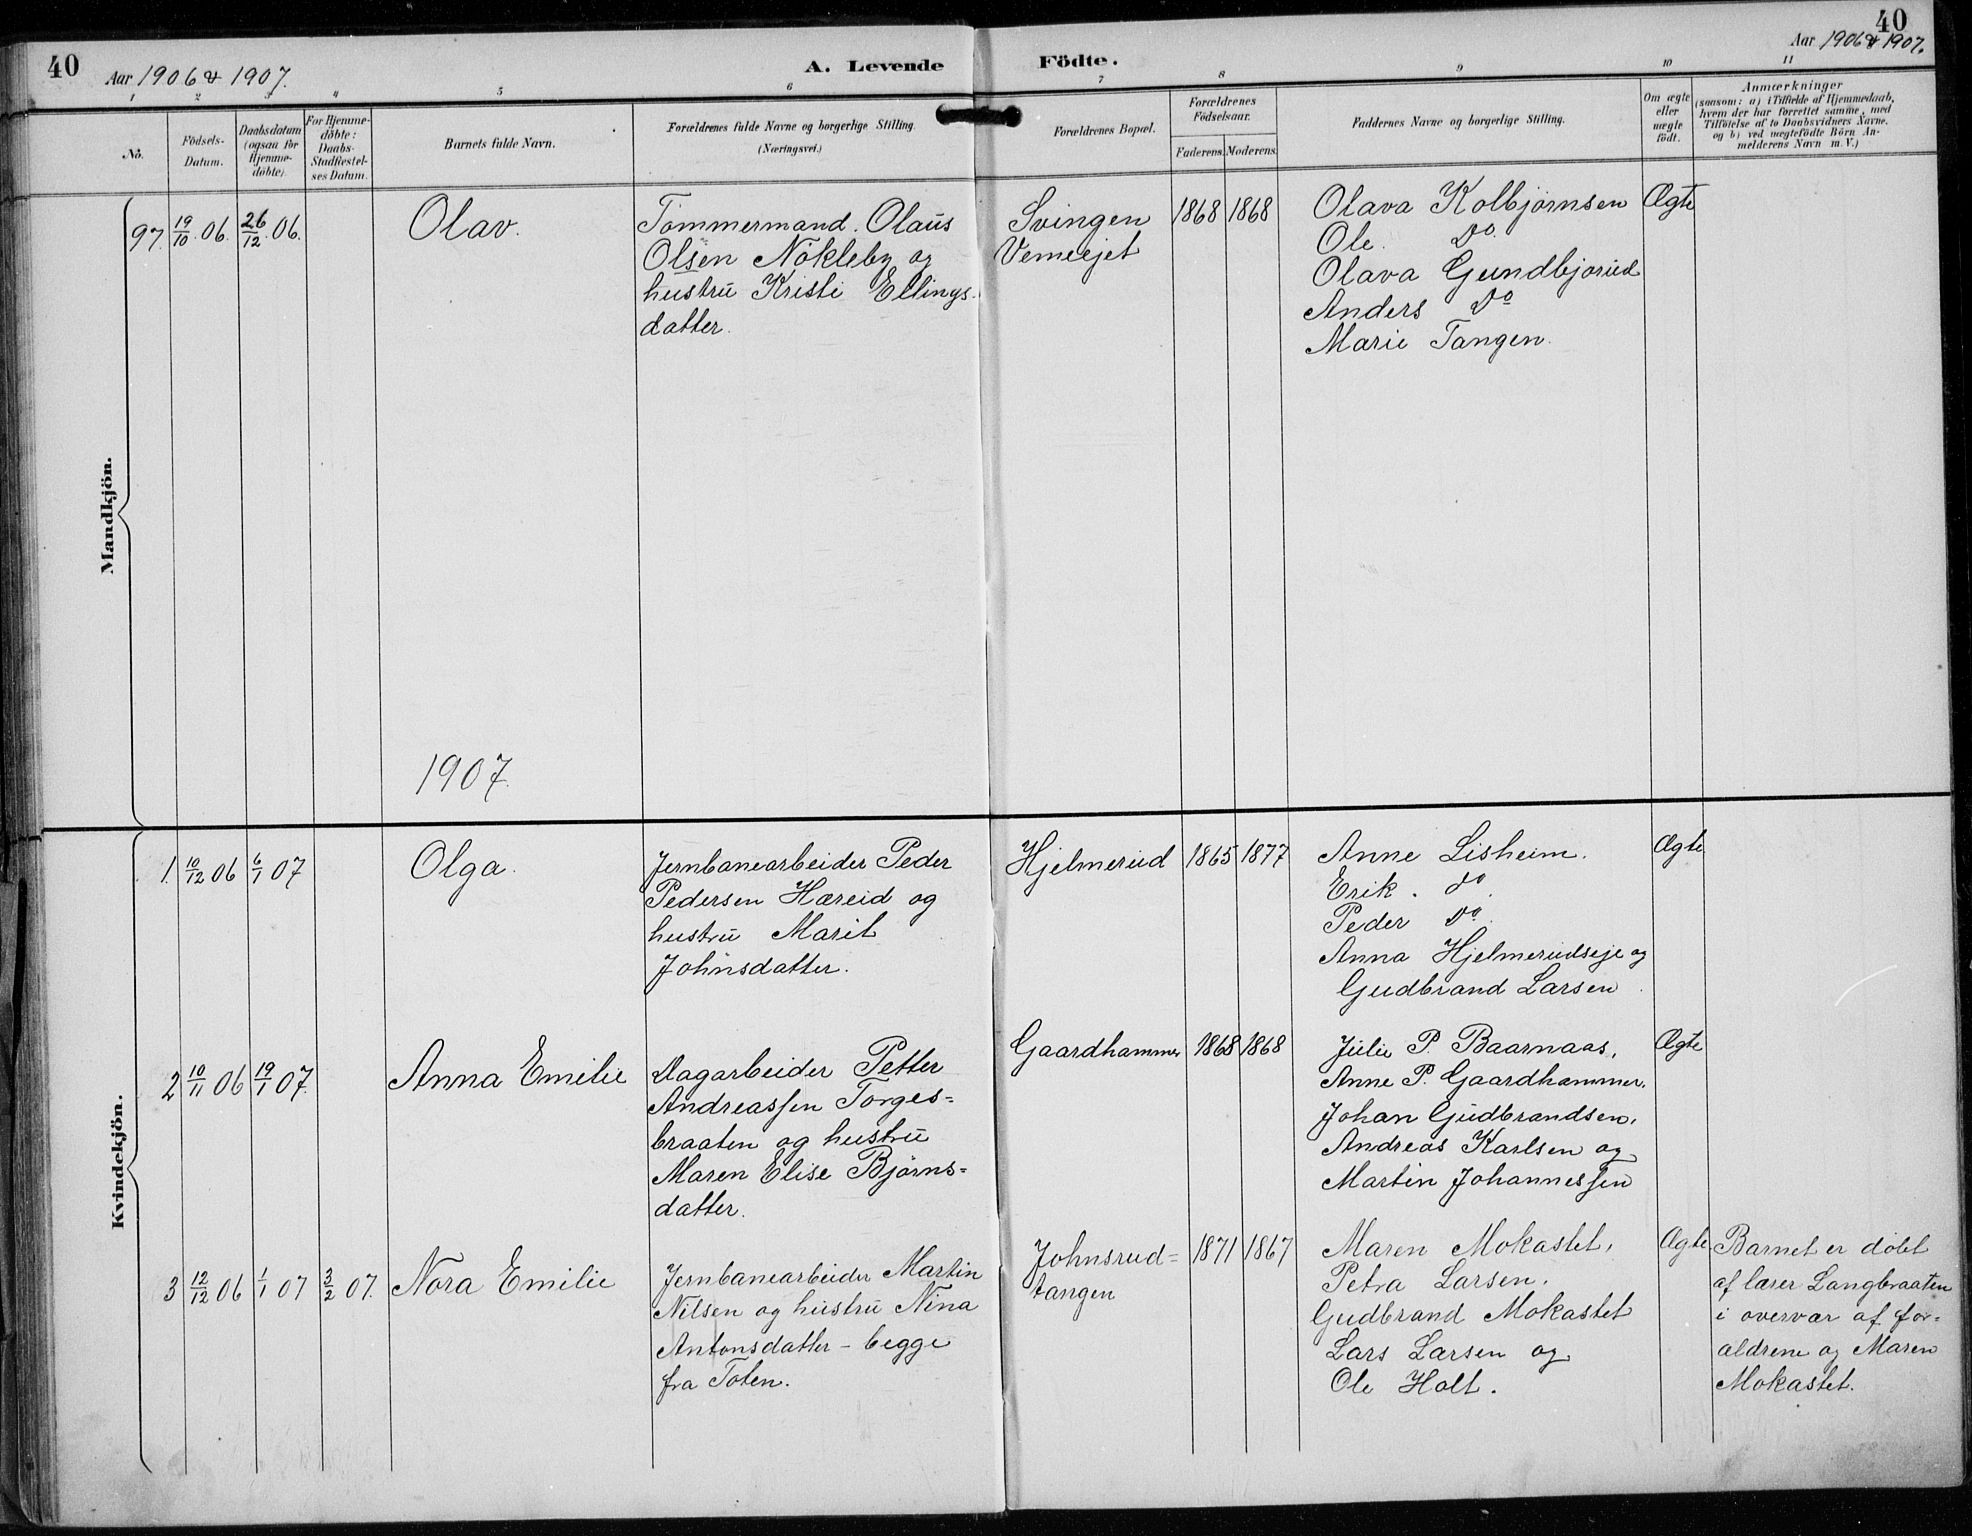 40
Aar 1906 & 1907.
A. Levende
Födte.
40
Aar 1906 & 1907.
1 2 3 4 5 6 7 8 9 10 11
No.
Födsels-
Datum.
Daabsdatum
(ogsaa for
Hjemme-
döbte).
For Hjemme-
döbte:
Daabs-
Stadfæstel-
ses Datum.
Barnets fulde Navn.
Forældrenes fulde Navne og borgerlige Stilling.
(Næringsvei.)
Forældrenes Bopæl.
Forældrenes
Födselsaar.
Faderens. Moderens.
Faddernes Navne og borgerlige Stilling.
Om ægte
eller
uægte
födt.
Anmærkninger
(saasom: a) i Tilfælde af Hjemmedaab,
hvem der har forrettet samme, med
Tilföielse af to Daabsvidners Navne.
og b) ved uægtefödte Börn An-
melderens Navn m. V.)
Mandkjön.
97. 19/10 06. 26/12 06.
Olav.
Tömmermand. Olaus
Olsen Nökleby og
hustru Kristi Ellings-
datter.
Svingen
Vemeejet
1868 1868
Olava Kolbjörnsen
Ole. Do.
Olava Gundbjorud
Anders Do
Marie Tangen.
Ægte
1907.
Kvindekjön.
1. 10/12 06 6/1 07
Olga.
Jernbanearbeider Peder
Pedersen Hæreid og
hustru Marit
Johnsdatter.
Hjelmerud
1865 1877
Anne Lisheim.
Erik. do.
Peder Do.
Anna Hjelmerudseje og
Gudbrand Larsen
Ægte
2 10/11 06 19/1 07.
Anna Emilie
Dagarbeider Petter
Andreassen Torges-
braaten og hustru
Maren Elise Björns-
datter.
Gaardhammer
1868 1868
Julie P. Baarnaas,
Anne P. Gaardhammer.
Johan Gudbrandsen,
Andreas Karlsen og
Martin Johannessen
Ægte
3 12/12 06 1/1 07 3/2 07.
Nora Emilie
Jernbanearbeider Martin
Nilsen og hustru Nina
Antonsdatter - begge
fra Toten.
Johnsrud-
tangen
1871 1867
Maren Mokastet,
Petra Larsen,
Gudbrand Mokastet
Lars Larsen og
Ole Holt.
Ægte
Barnet er döbt
af lærer Langbraaten
i overvær af for-
ældrene og Maren
Mokastet.